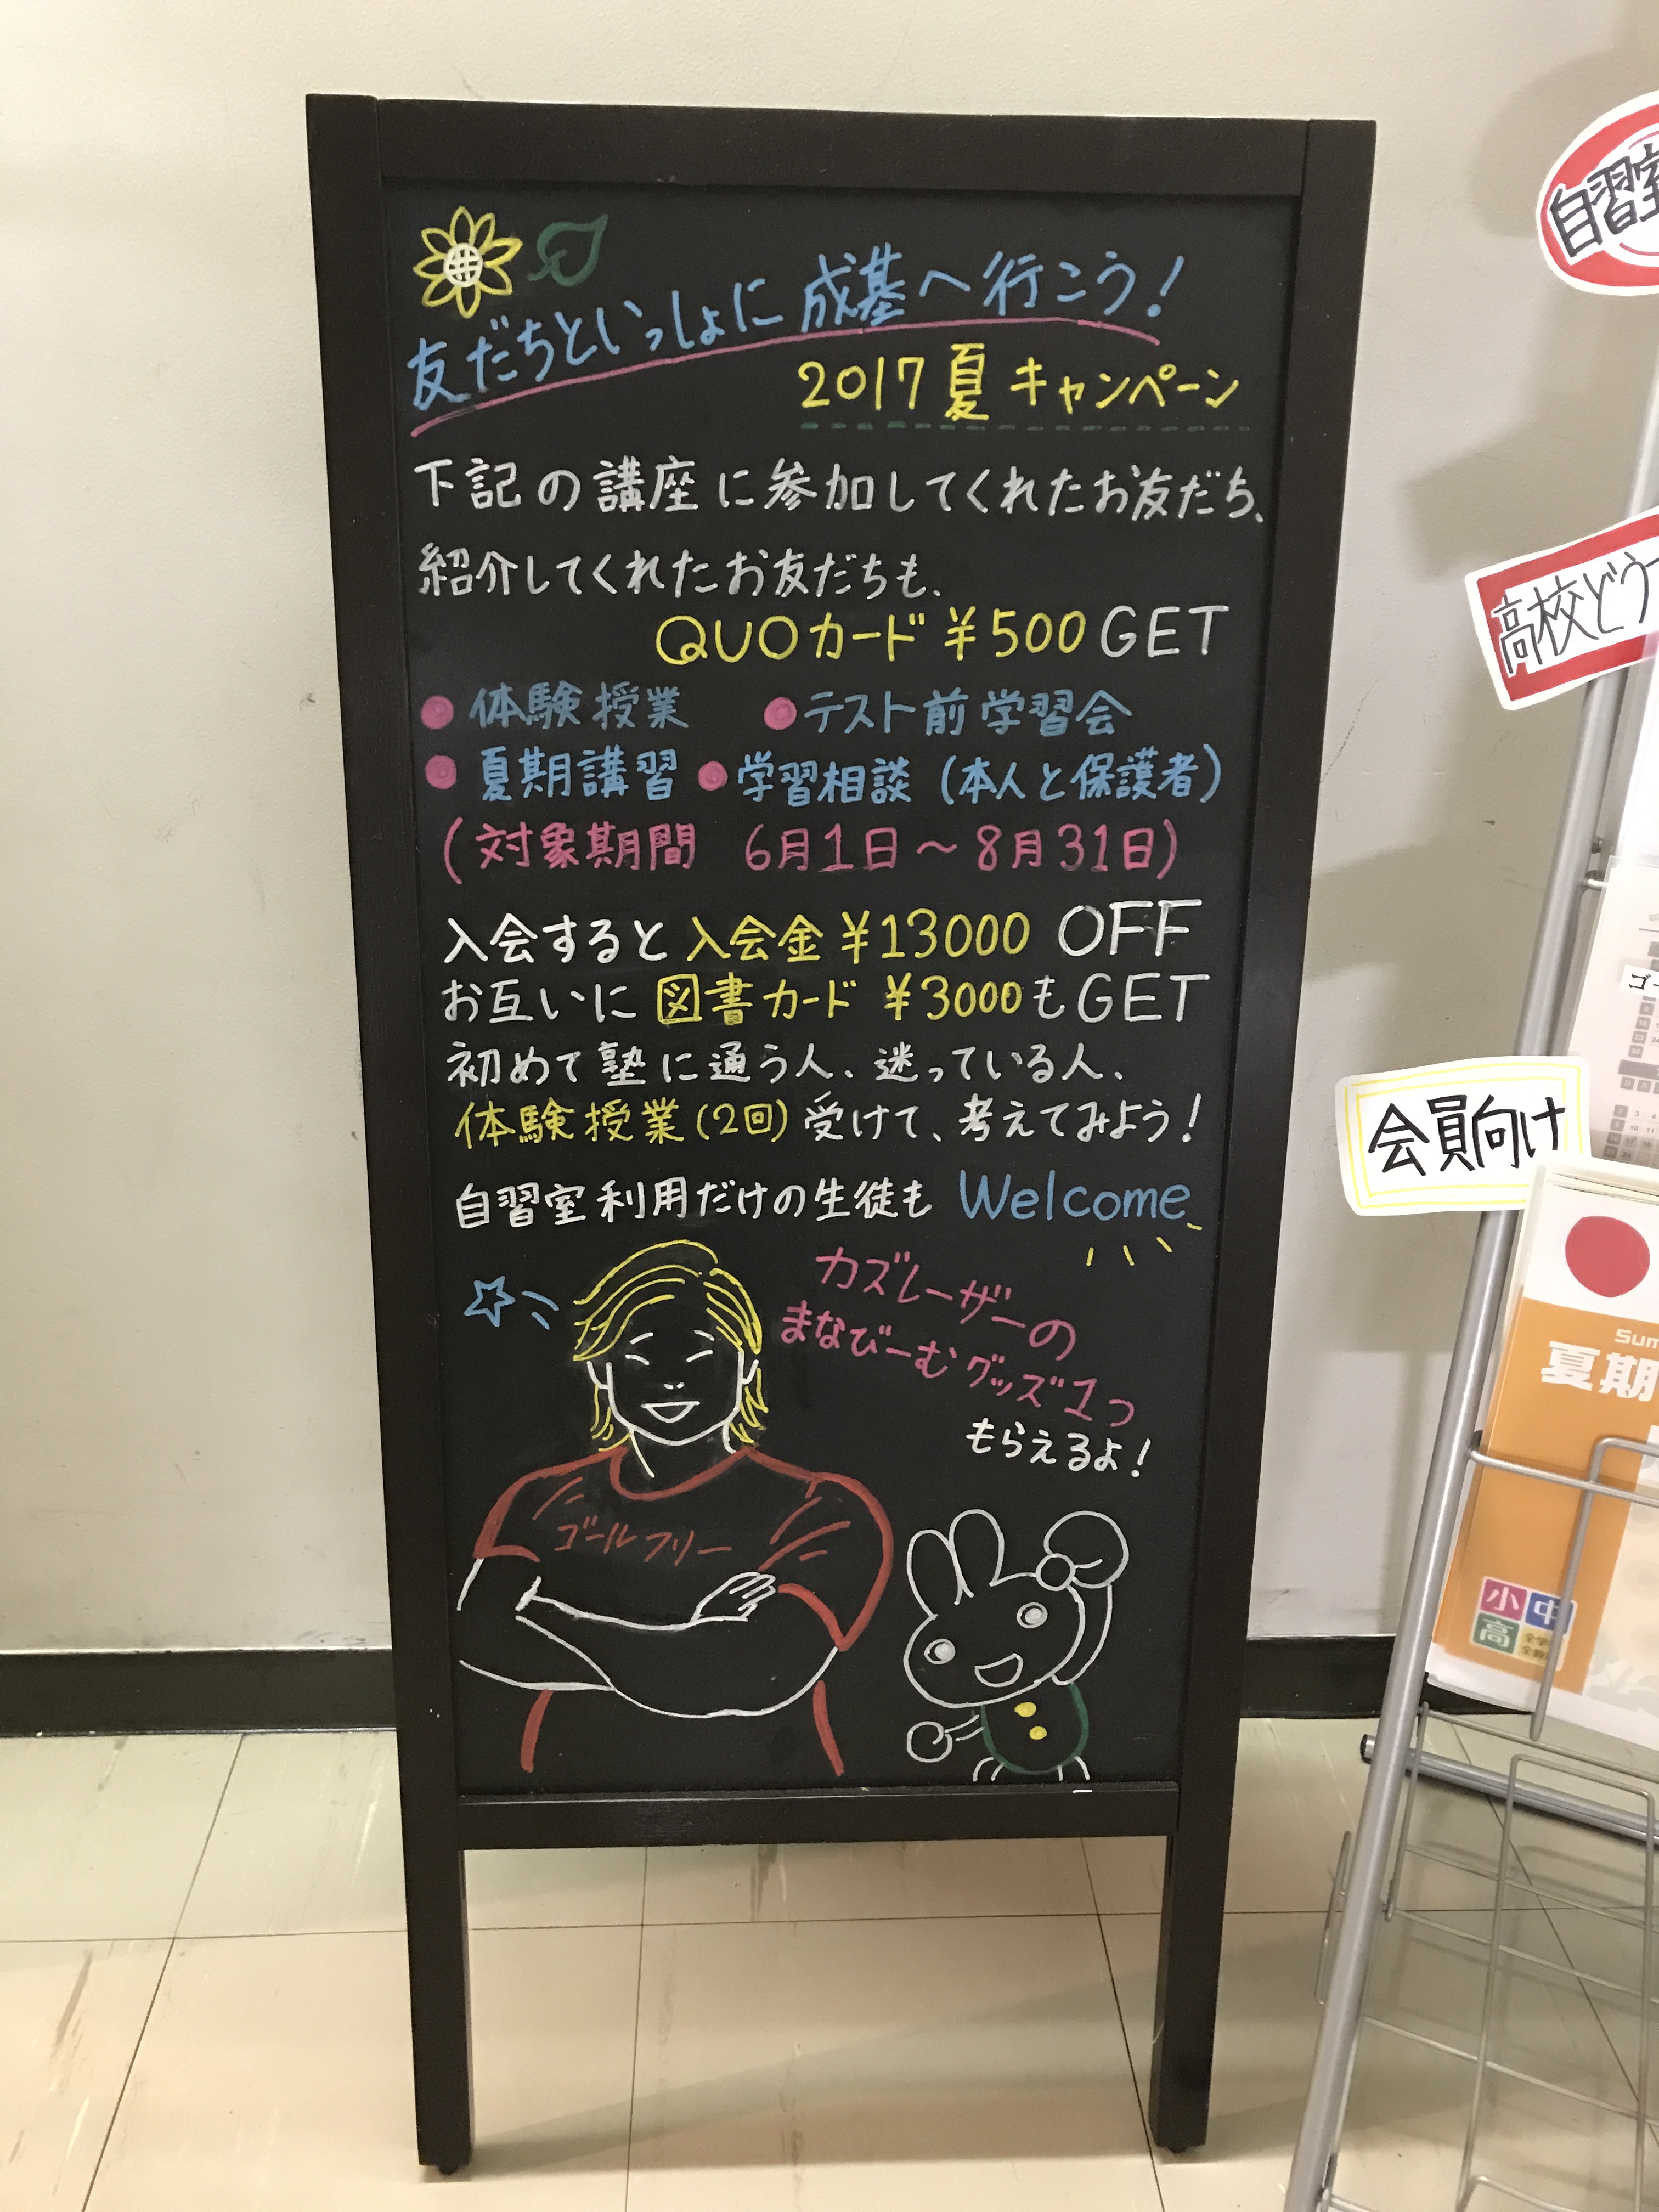 友だちといっしょに 成基へ行こう!
2017 夏 キャンペーン
下記の講座に参加してくれたお友だち、
紹介してくれたお友だちも、
QUOカード ¥500 GET
● 体験授業 ● テスト前学習会
● 夏期講習 ● 学習相談 (本人と保護者)
(対象期間 6月1日〜8月31日)
入会すると 入会金 ¥13000 OFF
お互いに 図書カード ¥3000も GET
初めて塾に通う人、迷っている人、
体験授業(2回) 受けて、考えてみよう!
自習室利用だけの生徒も Welcome
カズレーザーの
まなびーむグッズ1つ
もらえるよ!
ゴールフリー
自習室
高校どう
会員向け
ゴー
Sum
夏期
小中
高